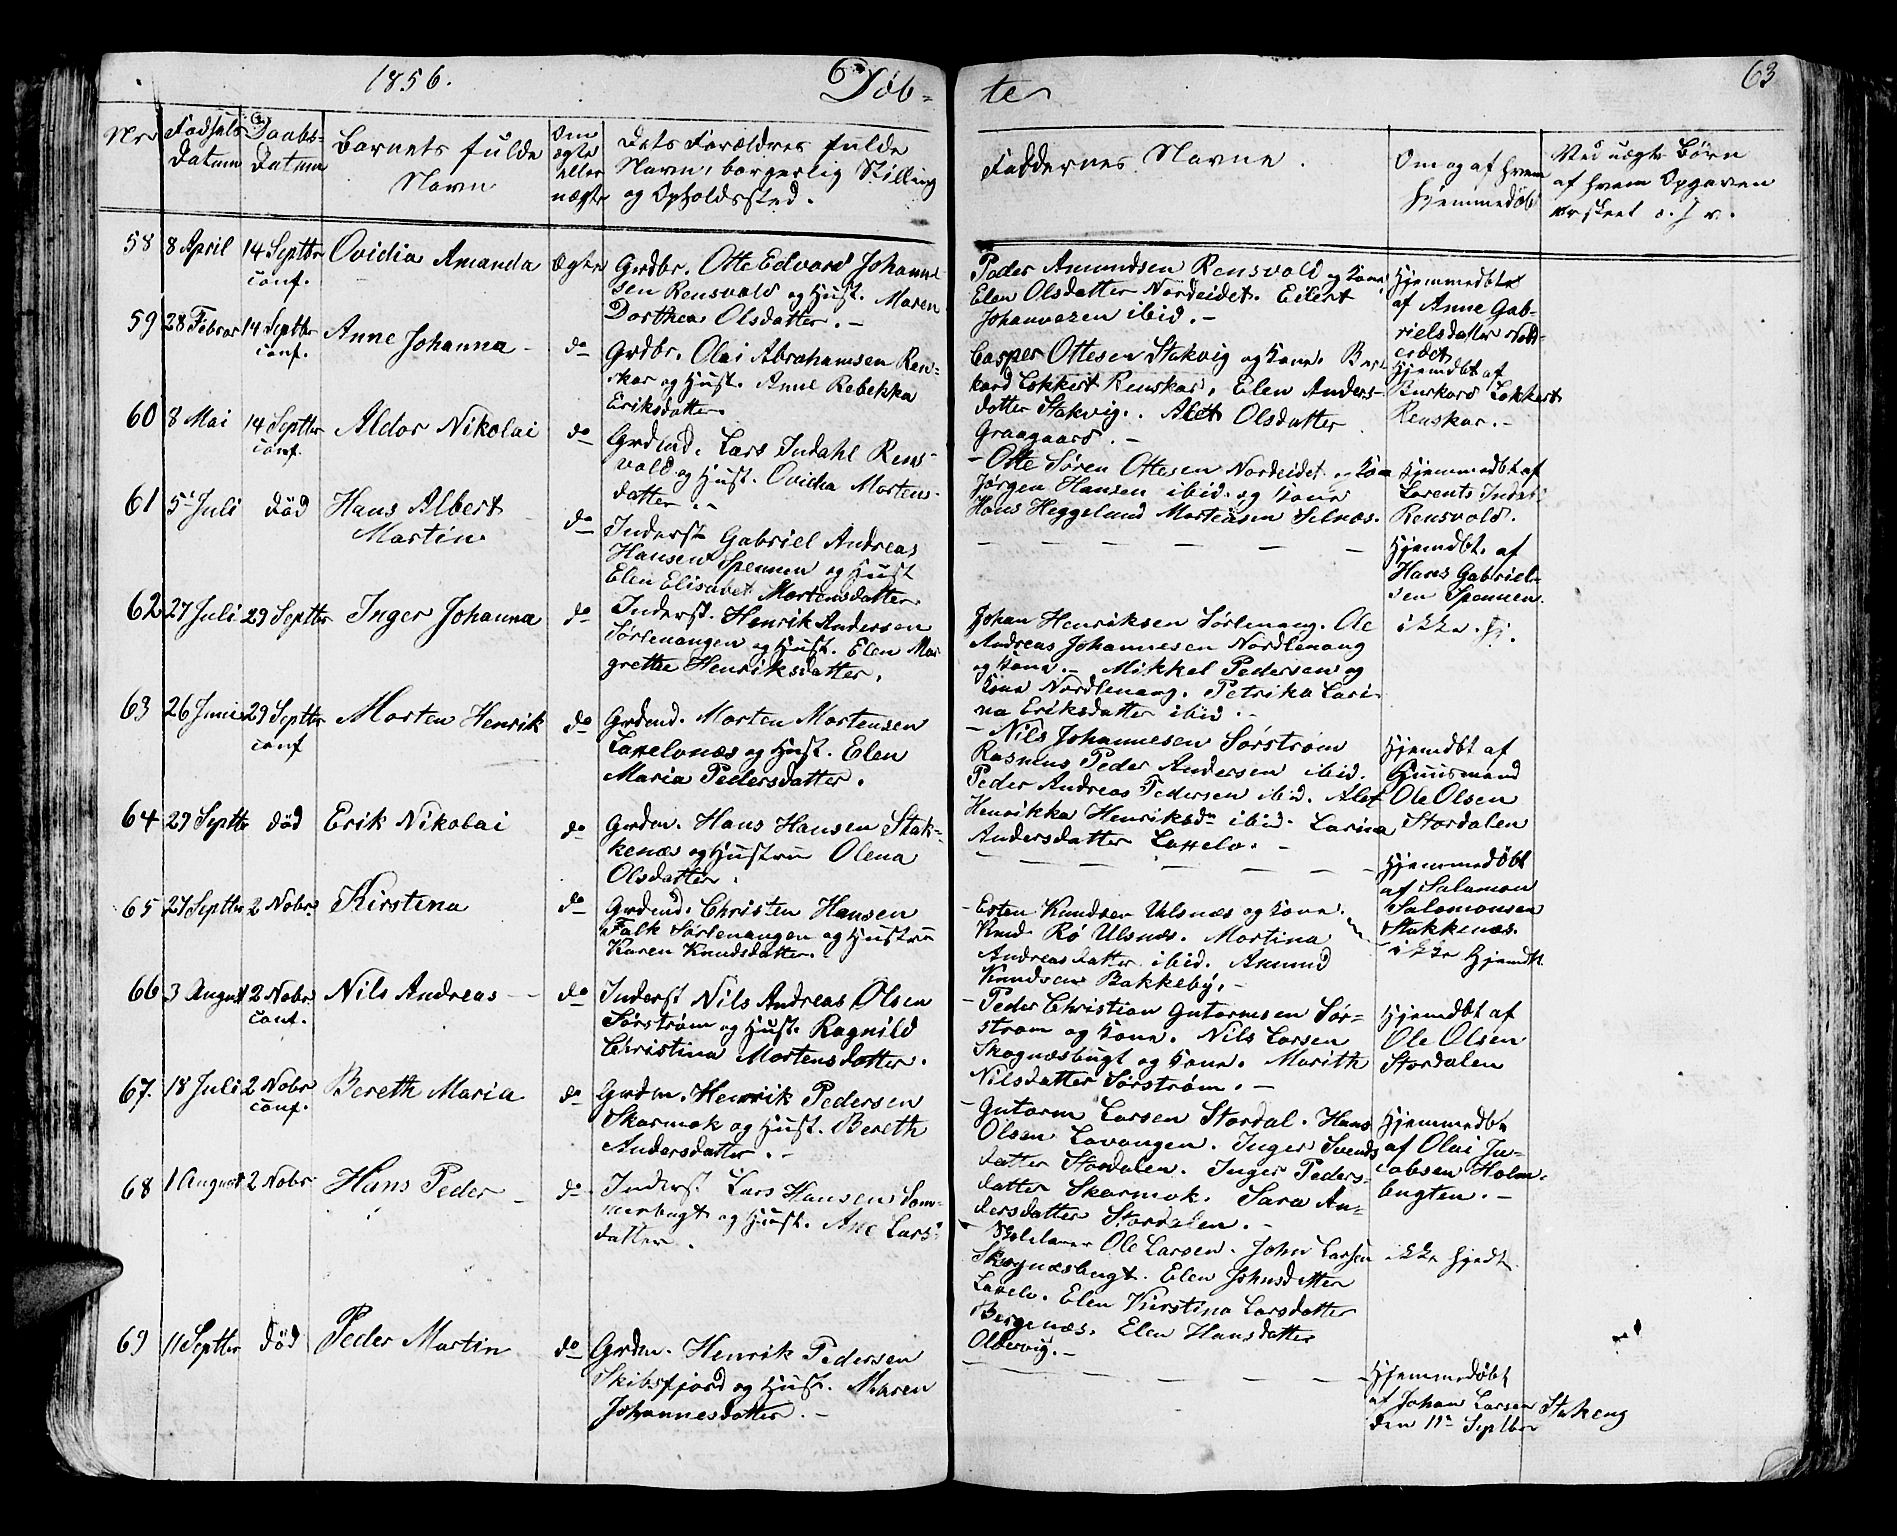 1856.
Döb-
te
63
Nr
Fødsels
Datum
Daabs-
Datum
Barnets fulde
Navn
Om
ægte
eller
uægte
Dets Forældres fulde
Navn, borgerlig Stilling
og Opholdssted.
Faddernes Navne.
Om og af hvem
hjemmedøbt
Ved uægte Børn
af hvem Opgaven
er skeet o. s. v.
58 8 April 14 Septbr
conf.
Ovidia Amanda
Ægte
Grdbr. Otte Edvard Johanne-
sen Rensvold og Hust. Maren
Dorthea Olsdatter. -
Peder Amundsen Rensvold og Kone
Elen Olsdatter Nordeidet. Eilert
Johannesen ibid. -
Hjemmedbt
af Anne Gab-
rielsdatter Nord-
eidet
59 28 Februar 14 Septbr
conf.
Anne Johanna -
do
Grdbr. Olai Abrahamsen Ren-
skar og Hust. Anne Rebekka
Eriksdatter.
Casper Ottesen Stakvig og Kone. Bur-
kard Lokkert Renskar, Elen Anders-
datter Stakvig. Alet Olsdatter
Graagaard. -
Hjemdbt af
Burkard Lokkert
Renskar. -
60 8 Mai 14 Septbr
conf.
Aldor Nikolai
do
Grdmd. Lars Indahl Rens-
vold og Hust. Ovidia Mortens-
datter. -
- Otte Søren Ottesen Nordeidet og Kone
Jørgen Hansen ibid. og Kone
Hans Heggelund Mortensen Selnæs.
Hjemmedbt af
Lorents Indal
Rensvold.
61 5 Juli død
Hans Albert
Martin
do
Inderst Gabriel Andreas
Hansen Spennen og Hust
Elen Elisabet Mortensdatter
Hjemdbt. af
Hans Gabriel-
sen Spennen.
62 27 Juli 29 Septbr
Inger Johanna
do
Inderst. Henrik Andersen
Sørlenangen og Hust. Elen Mar
grethe Henriksdatter.
Johan Henriksen Sørlenang. Ole
Andreas Johannesen Nordlenang
og Kone. - Mikkel Pedersen og
Kone Nordlenang. Petrika Lari-
na Eriksdatter ibid. -
ikke. hj.
63 26 Juni 29 Septbr
conf
Morten Henrik
do
Grdmd. Morten Mortensen
Lattelvnæs og Hust. Elen
Maria Pedersdatter.
- Nils Johannesen Sørstrøm
Rasmus Peder Andersen ibid.
Peder Andreas Pedersen ibid. Alet
Henrikka Henriksdr ibid. Larina
Andersdatter Lattelv. -
Hjemdbt af
Huusmand
Ole Olsen
Stordalen
64 29 Septbr død
Erik Nikolai
do
Grdm. Hans Hansen Stak-
kenæs og Hustru Olena
Olsdatter.
Hjemmedøbt
af Salamon
Salamonsen
Stakkenæs.
65 27 Septbr 2 Nobr.
Kirstina
do
Grdmd. Christen Hansen
Falk Sørlenangen og Hustru
Karen Knudsdatter.
- Esten Knudsen Ulsnæs og Kone.
Knud Rø Ulsnæs. Martina
Andreasdatter ibid. Amund
Knudsen Bakkeby. -
- ikke Hjemdt.
66 3 August 2 Nobr
conf.
Nils Andreas -
do
Inderst Nils Andreas Olsen
Sørstrøm og Hust. Ragnild
Christina Mortensdatter.
- Peder Christian Gutormsen Sør-
strøm og Kone. Nils Larsen
Skognæsbugt og Kone. Marith
Nilsdatter Sørstrøm. -
Hjemdbt af
Ole Olsen
Stordalen
67. 18 Juli 2 Nobr
conf.
Bereth Maria
do
Grdm. Henrik Pedersen
Skarmok og Hust. Bereth
Andersdatter. -
- Gutorm Larsen Stordal. Hans
Olsen Lavangen. Inger Svends
datter Stordalen. Inger Peders-
datter Skarmok. Sara An-
dersdatter Stordalen. -
Hjemmedbt
af Olai Ja-
cobsen Holm-
bugten. -
68 1 August 2 Nobr
Hans Peder -
do
Inderst. Lars Hansen Som-
merbugt og Hust. Ane Lars-
datter.
- Skolelærer Ole Larsen. John Larsen
Skognæsbugt. Elen Johnsdatter
Lattelv. Elen Kirstina Larsdatter
Bergenæs. Elen Hansdatter
Oldervig. -
ikke hjedt.
69 11 Septbr død
Peder Martin
do
Grdm. Henrik Pedersen
Skibsfjord og Hust. Maren
Johannesdatter. -
Hjemmedøbt
af Johan Larsen Stakeng
den 11te Septbr